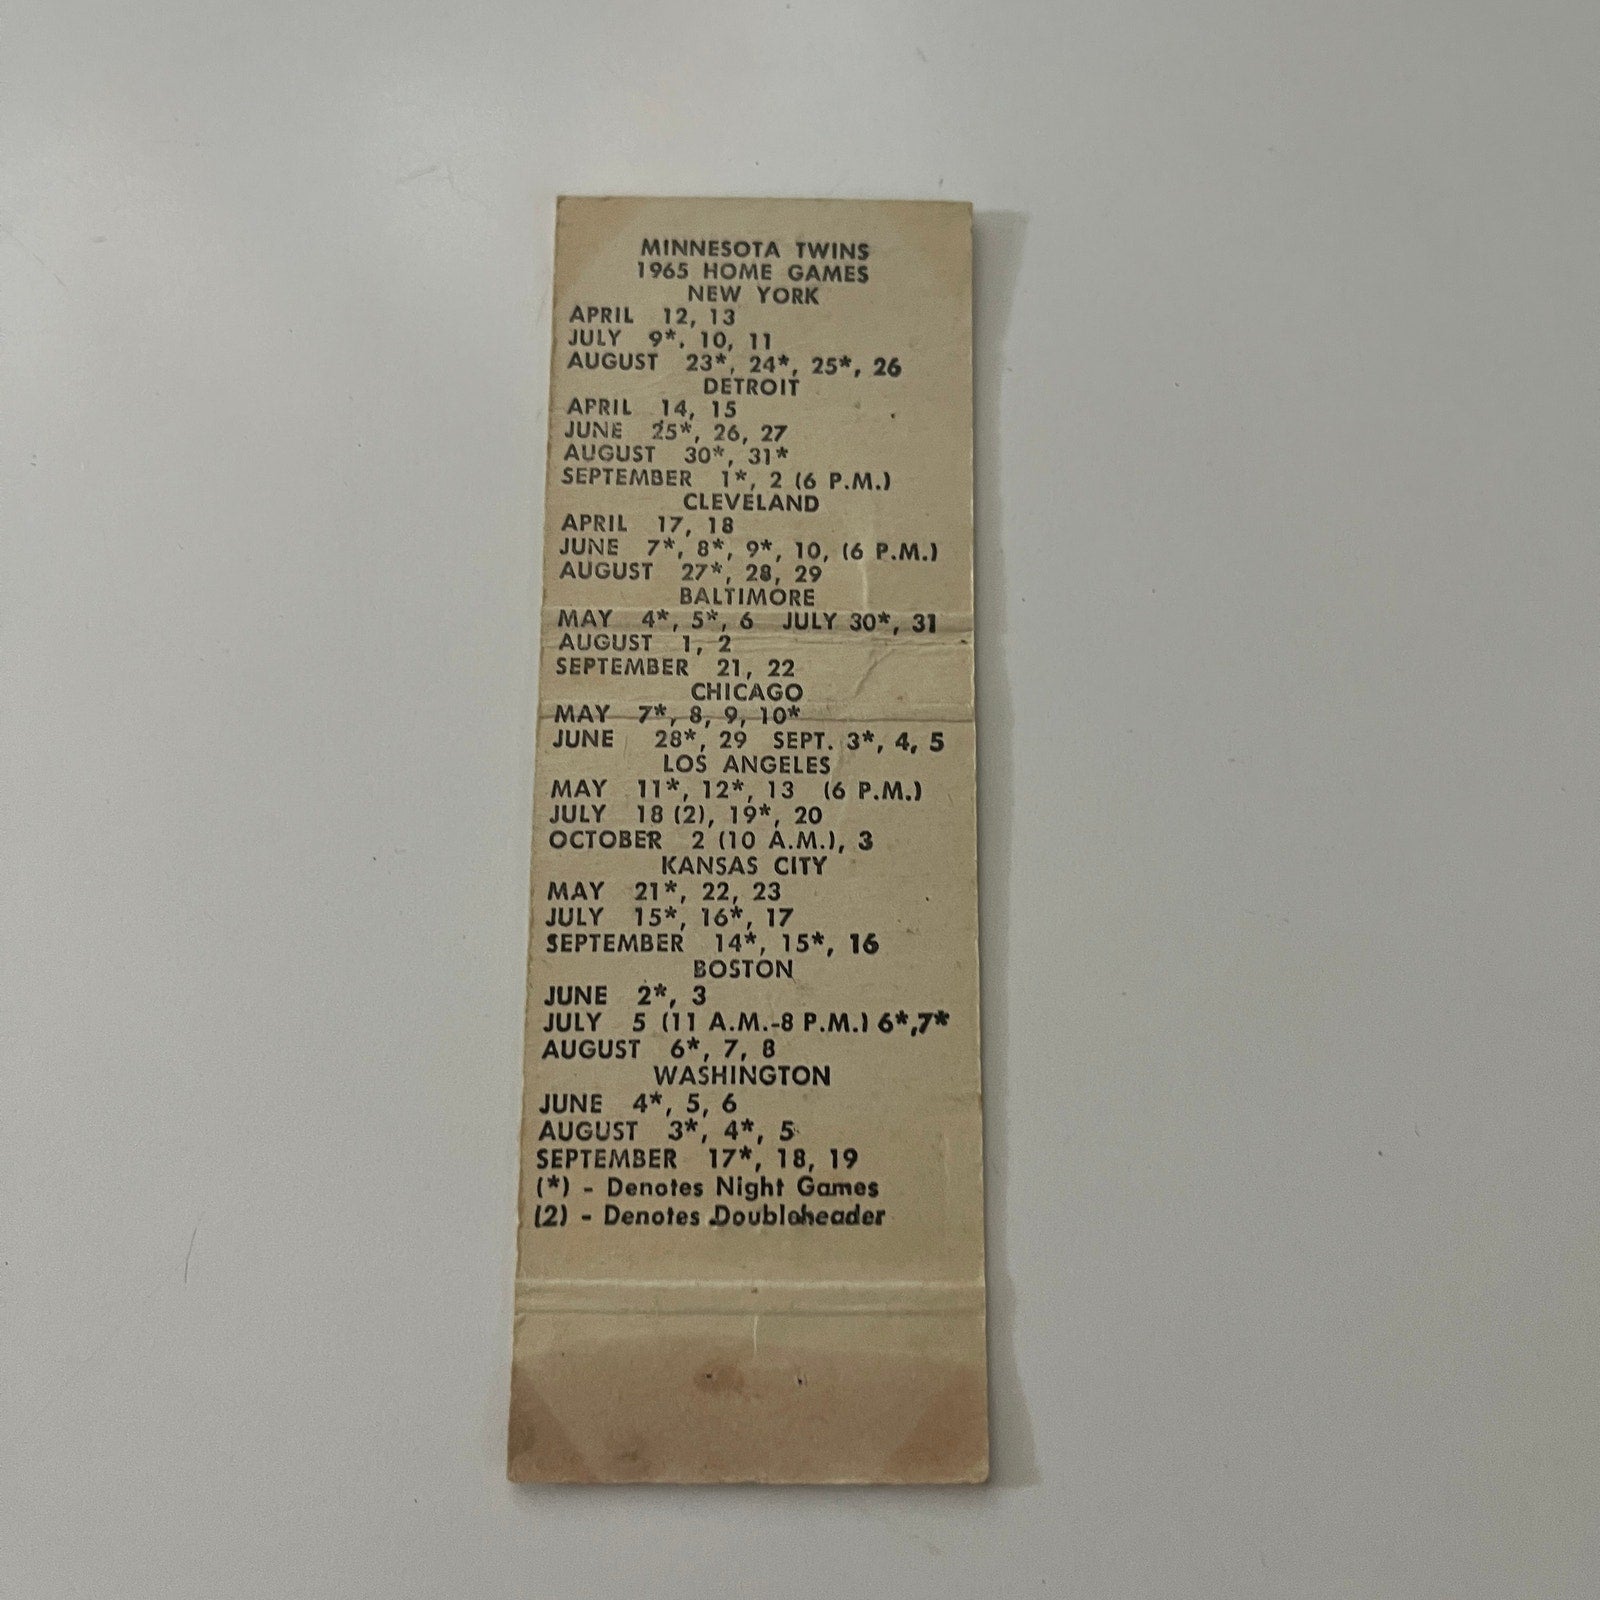 MINNESOTA TWINS
1965 HOME GAMES
NEW YORK
APRIL 12, 13
JULY 9*, 10, 11
AUGUST 23*, 24*, 25*, 26
DETROIT
APRIL 14, 15
JUNE 25*, 26, 27
AUGUST 30*, 31*
SEPTEMBER 1*, 2 (6 P.M.)
CLEVELAND
APRIL 17, 18
JUNE 7*, 8*, 9*, 10, (6 P.M.)
AUGUST 27*, 28, 29
BALTIMORE
MAY 4*, 5*, 6 JULY 30*, 31
AUGUST 1, 2
SEPTEMBER 21, 22
CHICAGO
MAY 7*, 8, 9, 10*
JUNE 28*, 29 SEPT. 3*, 4, 5
LOS ANGELES
MAY 11*, 12*, 13 (6 P.M.)
JULY 18 (2), 19*, 20
OCTOBER 2 (10 A.M.), 3
KANSAS CITY
MAY 21*, 22, 23
JULY 15*, 16*, 17
SEPTEMBER 14*, 15*, 16
BOSTON
JUNE 2*, 3
JULY 5 (11 A.M.-8 P.M.) 6*,7*
AUGUST 6*, 7, 8
WASHINGTON
JUNE 4*, 5, 6
AUGUST 3*, 4*, 5
SEPTEMBER 17*, 18, 19
(*) - Denotes Night Games
(2) - Denotes Doubleheader